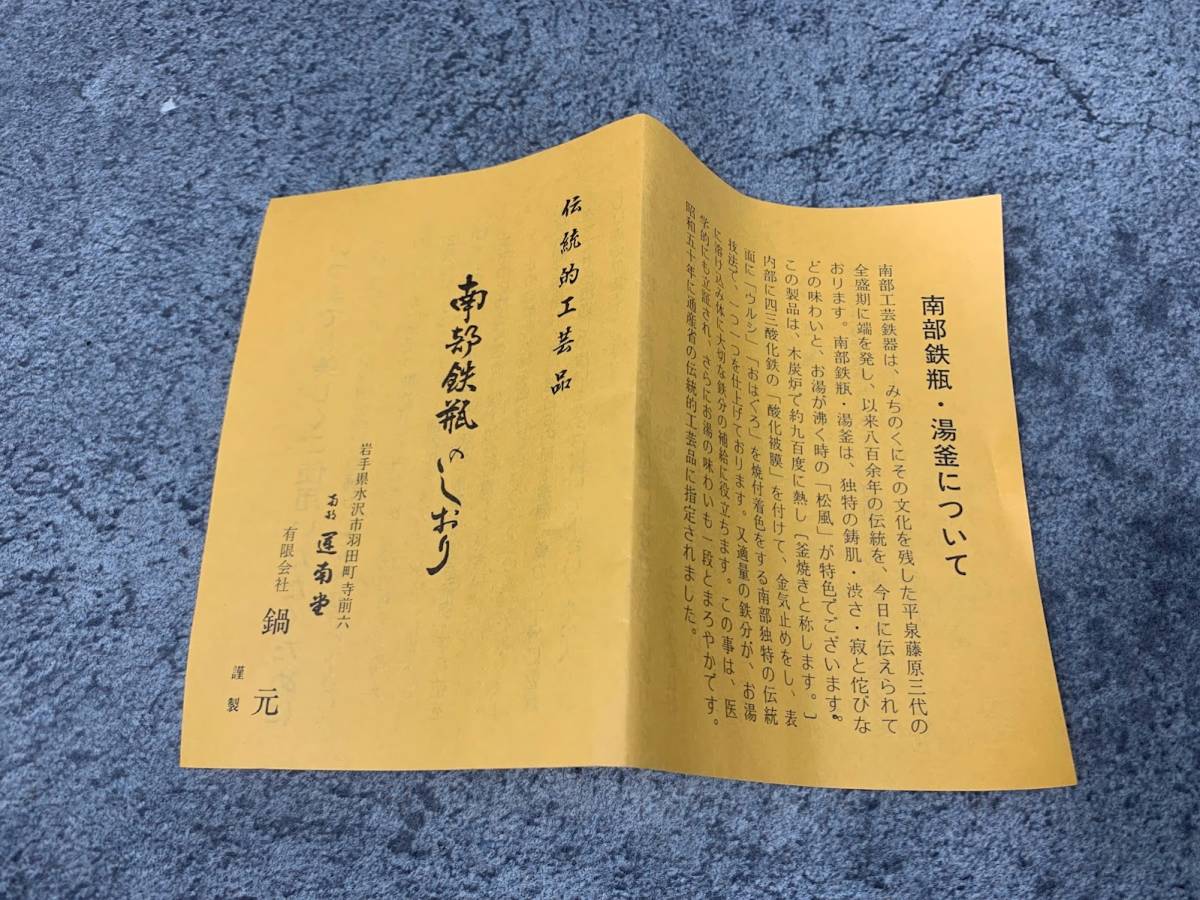 南部鉄瓶・湯釜について
南部工芸鉄器は、みちのくにその文化を残した平泉藤原三代の
全盛期に端を発し、以来八百余年の伝統を、今日に伝えられて
おります。南部鉄瓶・湯釜は、独特の鋳肌・渋さ・寂と侘びな
どの味わいと、お湯が沸く時の「松風」が特色でございます。
この製品は、木炭炉で約九百度に熱し〔釜焼きと称します。〕
内部に四三酸化鉄の「酸化被膜」を付けて、金気止めをし、表
面に「ウルシ」「おはぐろ」を焼付着色をする南部独特の伝統
技法で、一つ一つを仕上げております。又適量の鉄分が、お湯
に溶け込み体に大切な鉄分の補給に役立ちます。この事は、医
学的にも立証され、さらにお湯の味わいも一段とまろやかです。
昭和五十年に通産省の伝統的工芸品に指定されました。
伝統的工芸品
南部鉄瓶のしおり
岩手県水沢市羽田町寺前六
南部 運南堂
有限会社 鍋元
謹製